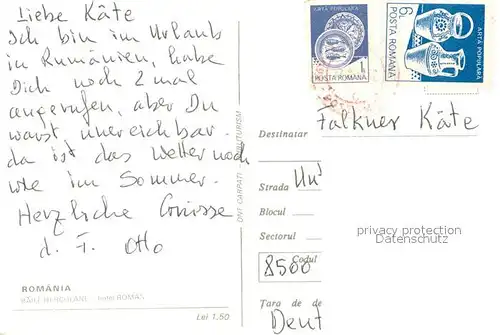 Liebe Käte
Ich bin im Urlaub
in Rumänien, habe
Dich noch 2 mal
angerufen, aber Du
warst unereichbar.
da ist das Wetter noch
wie im Sommer.
Herzliche Grüsse
d. F. Otto
ROMÂNIA
BĂILE HERCULANE Hotel ROMAN
Lei 1,50
ONT CARPATI
ARTA POPULARA
POSTA ROMANA 1L
ARTA POPULARA
6L
POSTA ROMANA
Destinatar
Falkner Käte
Strada
Blocul
Sectorul
privacy protection
Datenschutz
Codul
8500
Țara de de
Deut